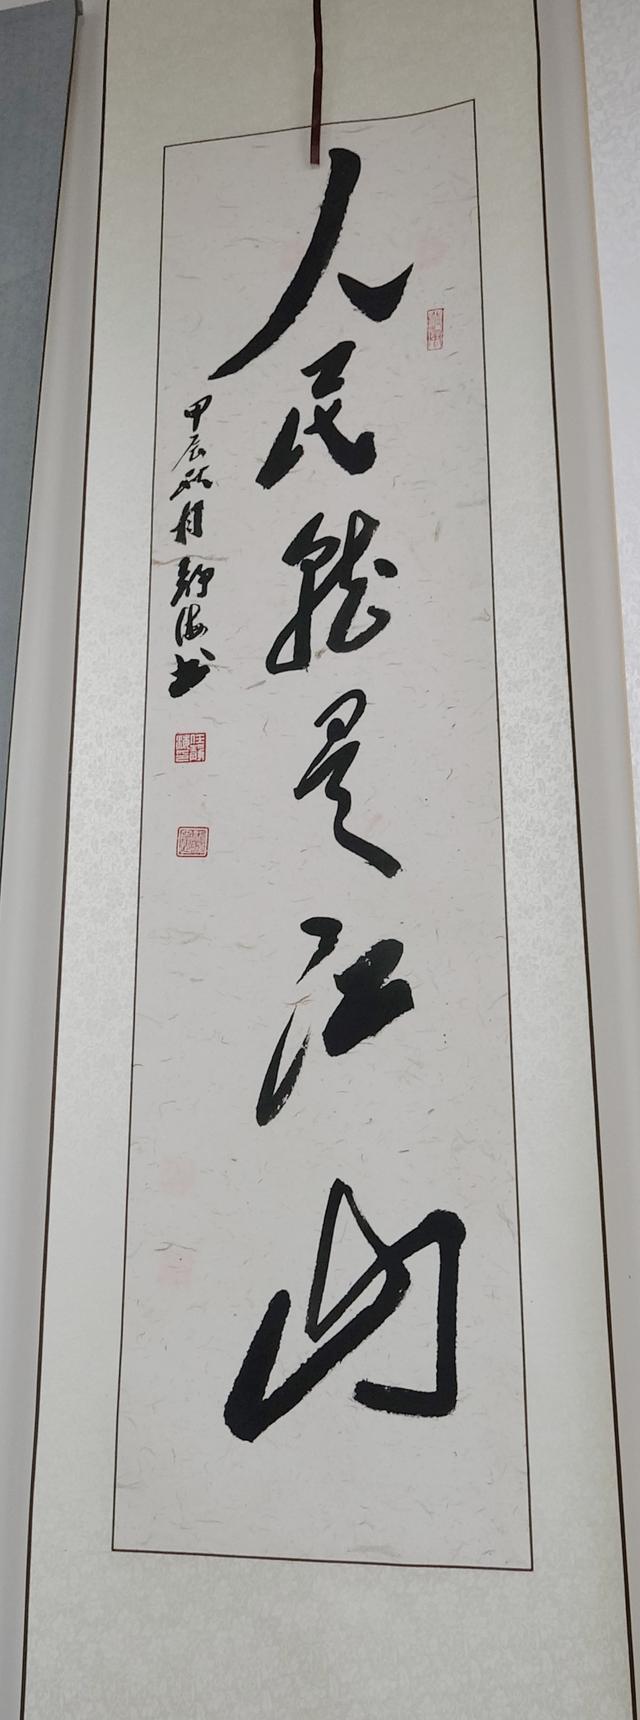 人民就是江山
甲辰秋月静海书